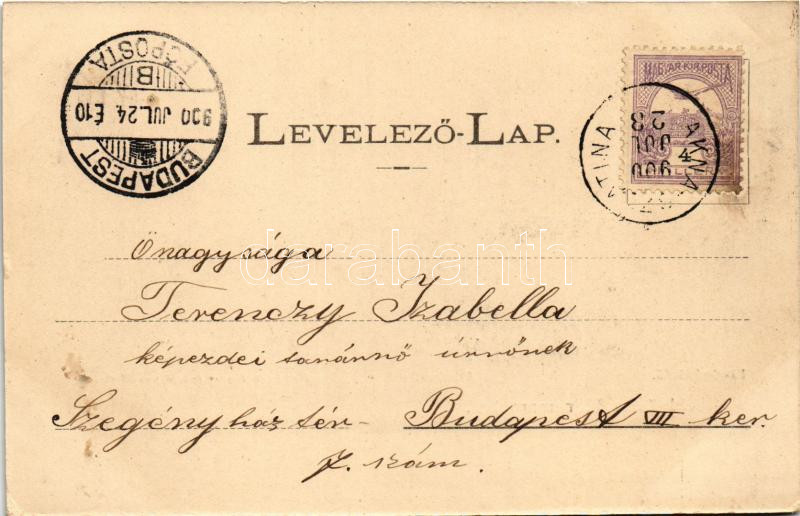 BUDAPEST
900 JUL.24. É10
B
FŐPOSTA
MAGYAR KIR. POSTA
4
AKNA SZLATINA
900
JUL
23
LEVELEZŐ-LAP.
Önagysága
darabanth
Terenczy Izabella
képezdei tanárnő úrnőnek
Szegényház tér- Budapest VII ker.
7. szám.